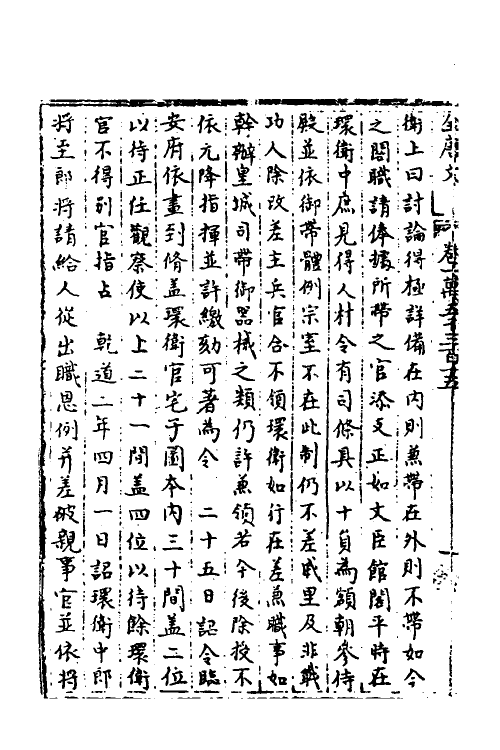 全唐文 卷一萬五千三百十五
衛上曰討論得極詳備在内則兼帶在外則不帶如今
之閤職請俸據所帶之官添支正如文臣館閣平時在
環衛中庶見得人材令有司條具以十員為額朝參侍
殿並依御帶體例宗室不在此制仍不差戚里及非戰
功人除改差主兵官合不領環衛如行在差兼職事如
幹辦皇城司帶御器械之類仍許兼領若今後除授不
依元降指揮並許繳劾可著為令 二十五日詔令臨
安府依畫到脩盖環衛官宅子圖本内三十間盖二位
以待正任觀察使以上二十一間盖四位以待餘環衛
官不得别官指占 乾道二年四月一日詔環衛中郎
將至郎將請給人從出職恩例并差破親事官並依將